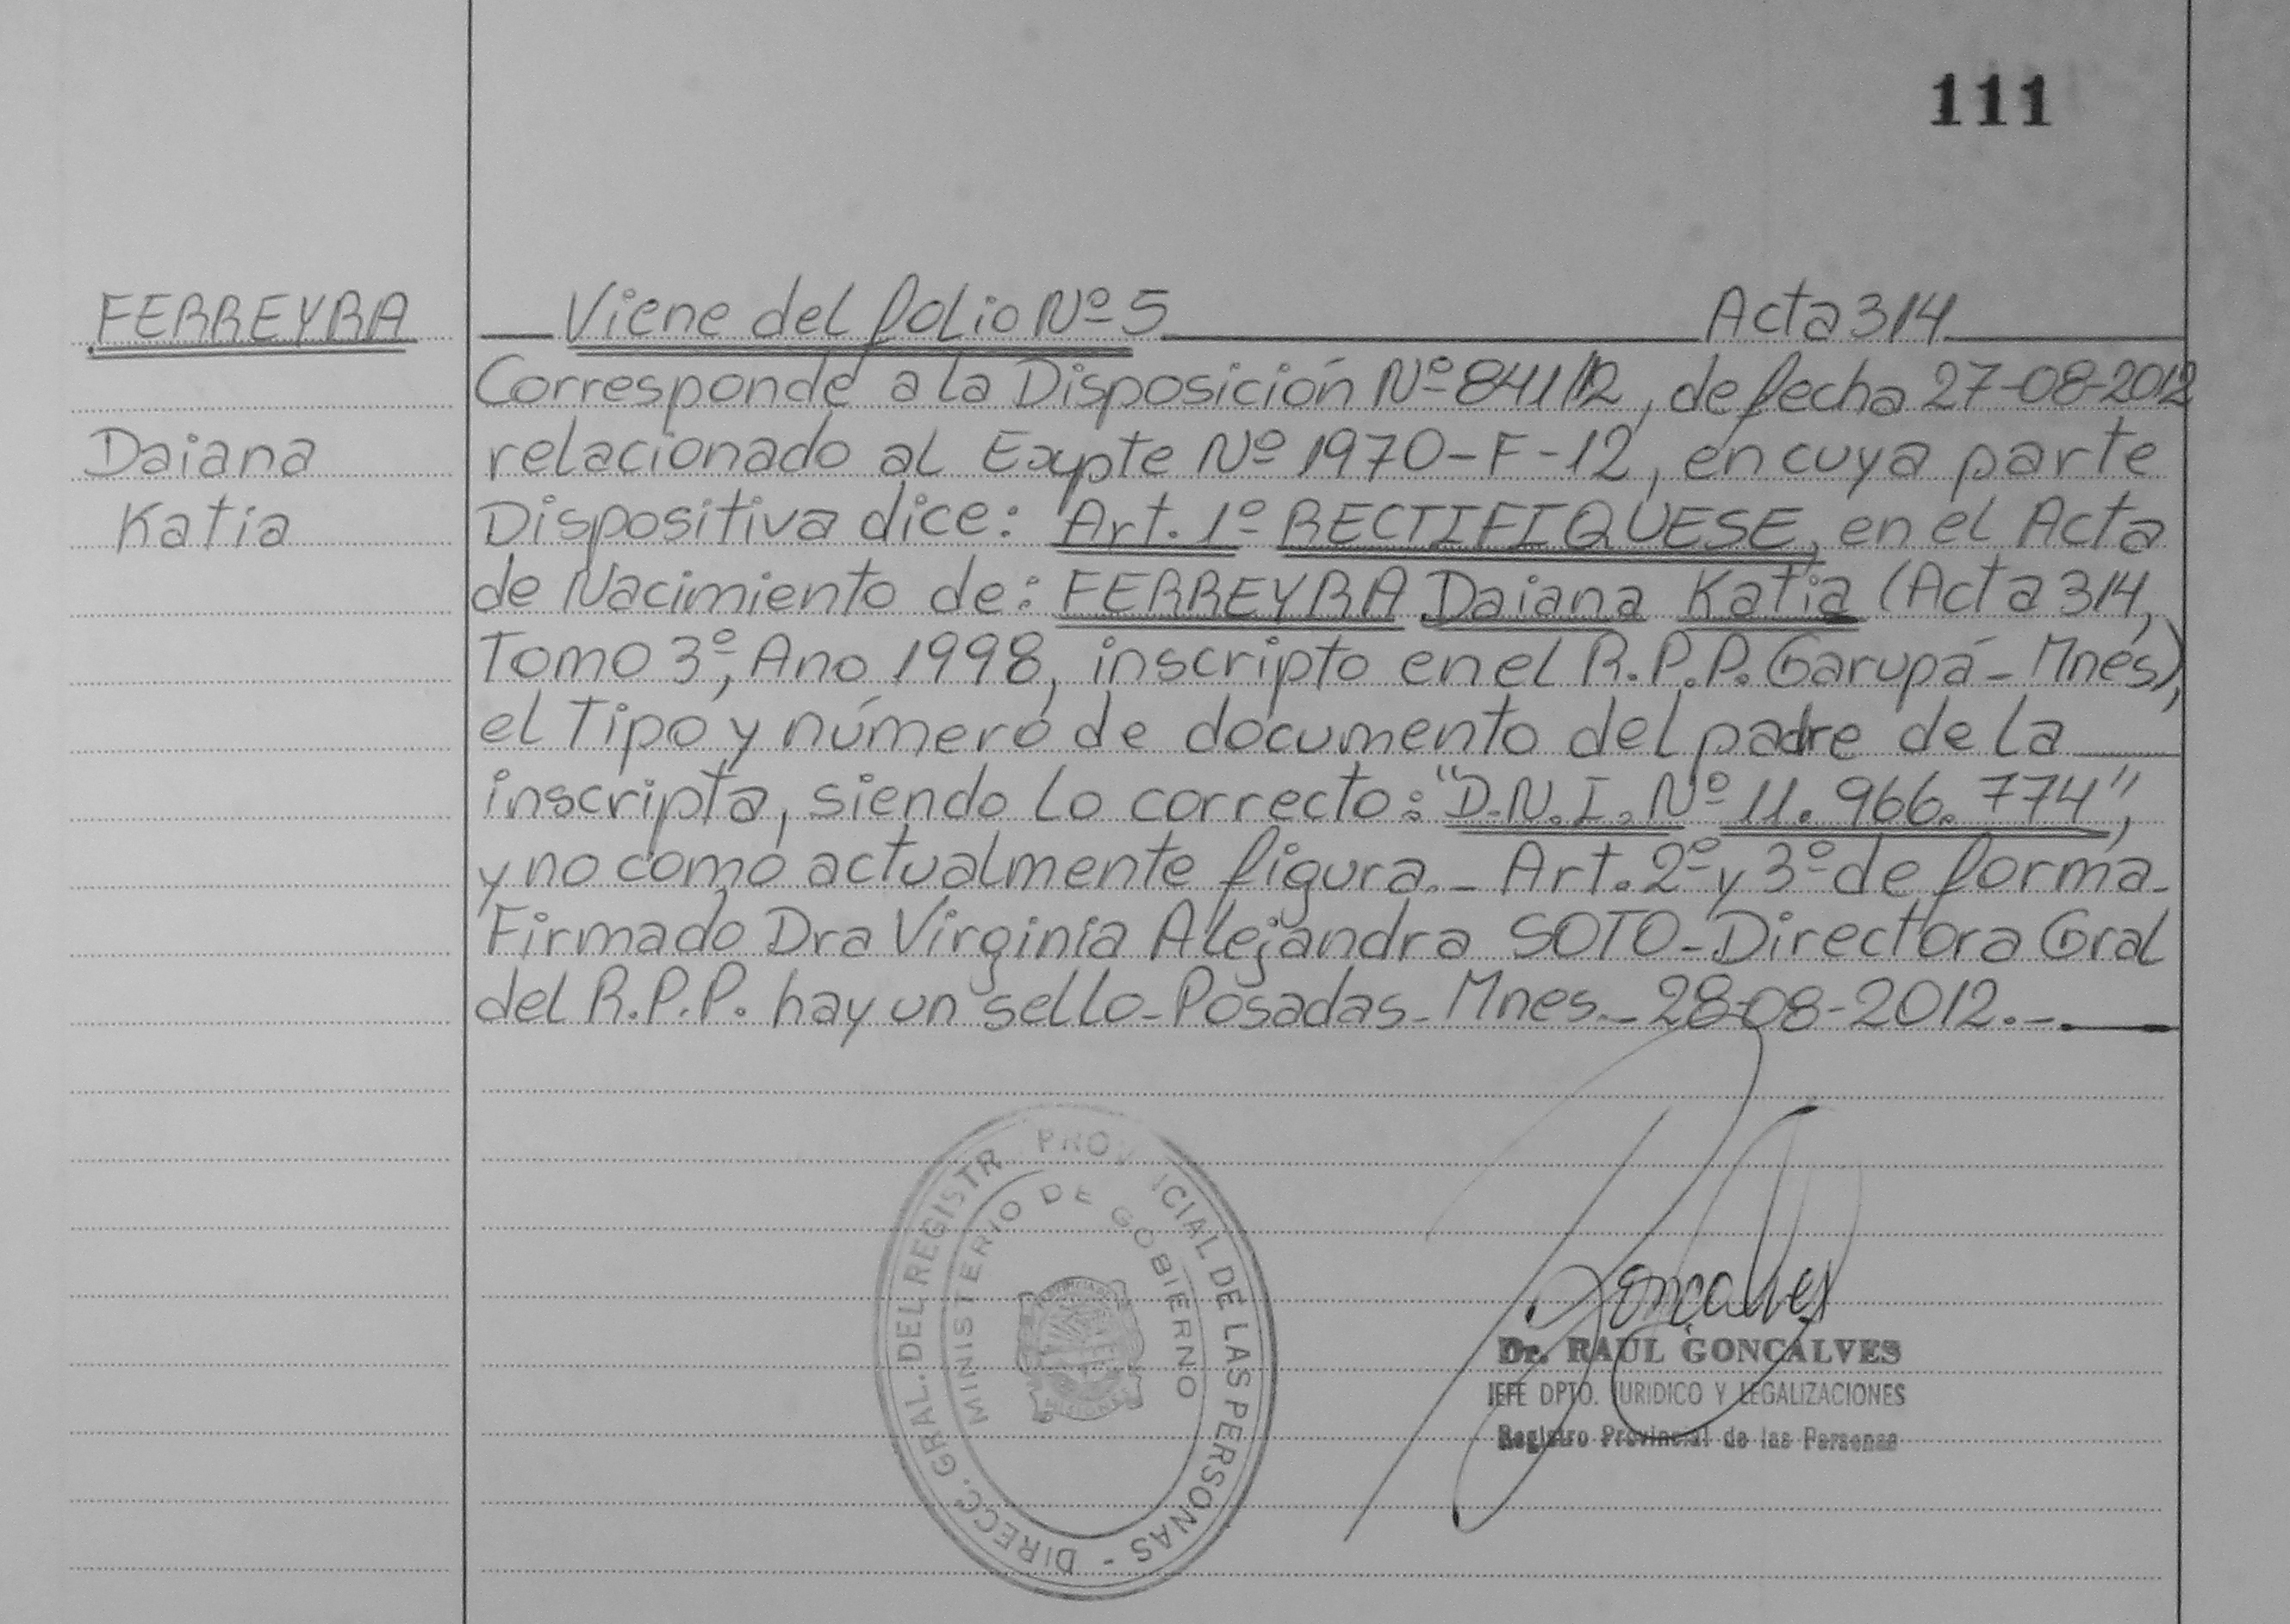 111
FERREYRA
Daiana
Katia
Viene del folio Nº 5 Acta 314
Corresponde a la Disposición Nº 841/12, de fecha 27-08-2012
relacionado al Expte Nº 1970-F-12, en cuya parte
Dispositiva dice: Art. 1º RECTIFIQUESE, en el Acta
de Nacimiento de: FERREYRA Daiana Katia (Acta 314,
Tomo 3º, Ano 1998, inscripto en el R.P.P. Garupá - Mnes),
el Tipo y número de documento del padre de la
inscripta, siendo lo correcto: "D.N.I. Nº 11.966.774",
y no como actualmente figura._ Art. 2º y 3º de forma_
Firmado Dra Virginia Alejandra SOTO-Directora Gral
del R.P.P. hay un sello-Posadas-Mnes._ 28-08-2012._
DIRECC. GRAL. DEL REGISTR PROV CIAL DE LAS PERSONAS -
MINISTERIO DE GOBIERNO
Gonçalves
Dr. RAUL GONÇALVES
JEFE DPTO. JURIDICO Y LEGALIZACIONES
Registro Provincial de las Personas